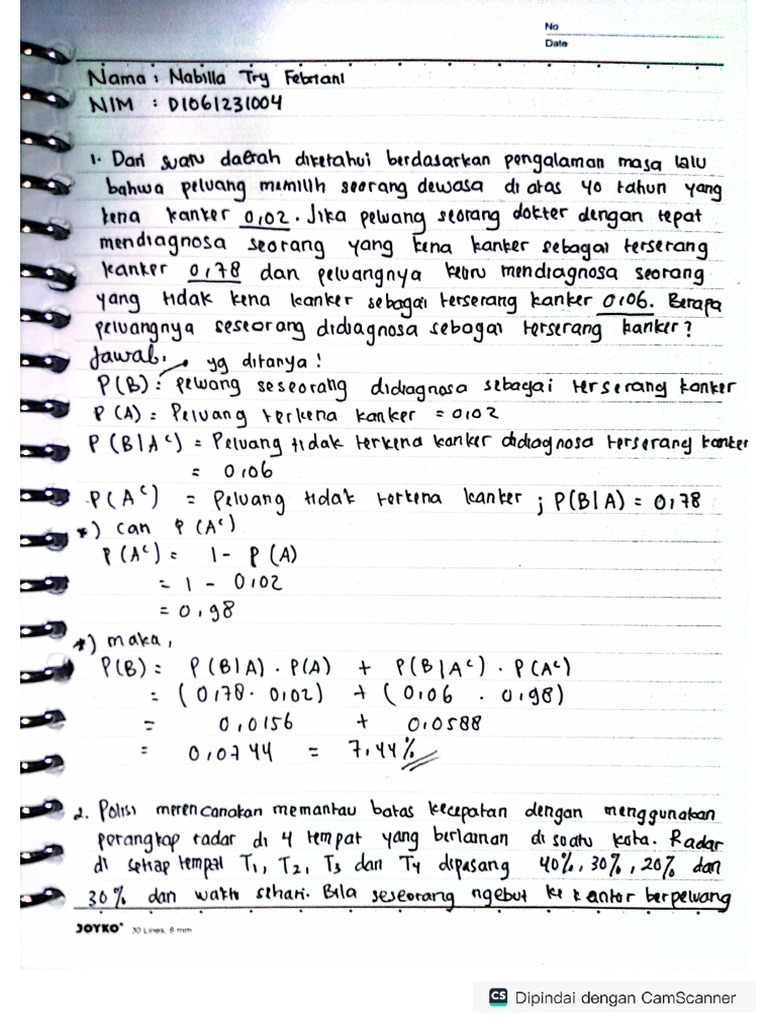 No
Date
Nama : Nabilla Try Febriani
NIM : D1061231004
1. Dari suatu daerah diketahui berdasarkan pengalaman masa lalu
bahwa peluang memilih seorang dewasa di atas 40 tahun yang
kena kanker 0,02. Jika peluang seorang dokter dengan tepat
mendiagnosa seorang yang kena kanker sebagai terserang
kanker 0,78 dan peluangnya keliru mendiagnosa seorang
yang tidak kena kanker sebagai terserang kanker 0,06. Berapa
peluangnya seseorang didiagnosa sebagai terserang kanker?
Jawab. yg ditanya!
P(B) : peluang seseorang didiagnosa sebagai terserang kanker
P (A) = Peluang terkena kanker = 0,02
P (B|Aᶜ) = Peluang tidak terkena kanker didiagnosa terserang kanker
= 0,06
P(Aᶜ) = Peluang tidak terkena kanker ; P(B|A) = 0,78
*) cari P(Aᶜ)
P(Aᶜ) = 1 - P (A)
= 1 - 0,02
= 0,98
*) maka,
P(B) = P(B|A) . P(A) + P(B|Aᶜ) . P(Aᶜ)
= (0,78. 0,02) + (0,06 . 0,98)
= 0,0156 + 0,0588
= 0,0744 = 7,44%
2. Polisi merencanakan memantau batas kecepatan dengan menggunakan
perangkap radar di 4 tempat yang berlainan di suatu kota. Radar
di setiap tempat T1, T2, T3 dan T4 dipasang 40%, 30%, 20% dan
30% dan waktu sehari. Bila seseorang ngebut ke kantor berpeluang
JOYKO 30 Lines, 6 mm
CS Dipindai dengan CamScanner